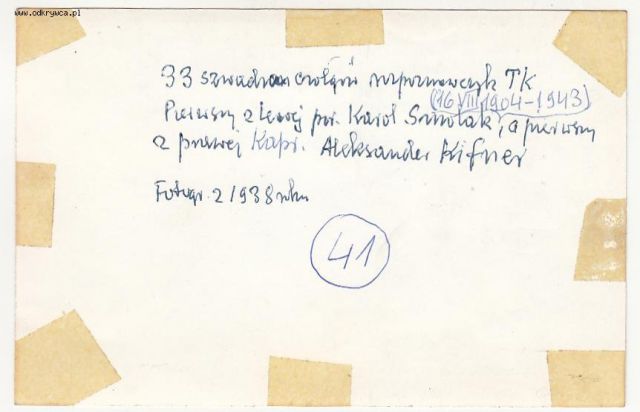 www.odkrywca.pl
33 szwadron czołgów rozpoznawczych TK
(16 VIII 1904-1943)
Pierwszy z lewej por. Karol Smolak, a pierwszy
z prawej Kapr. Aleksander Kifner
Fotogr. z 1938 roku
41